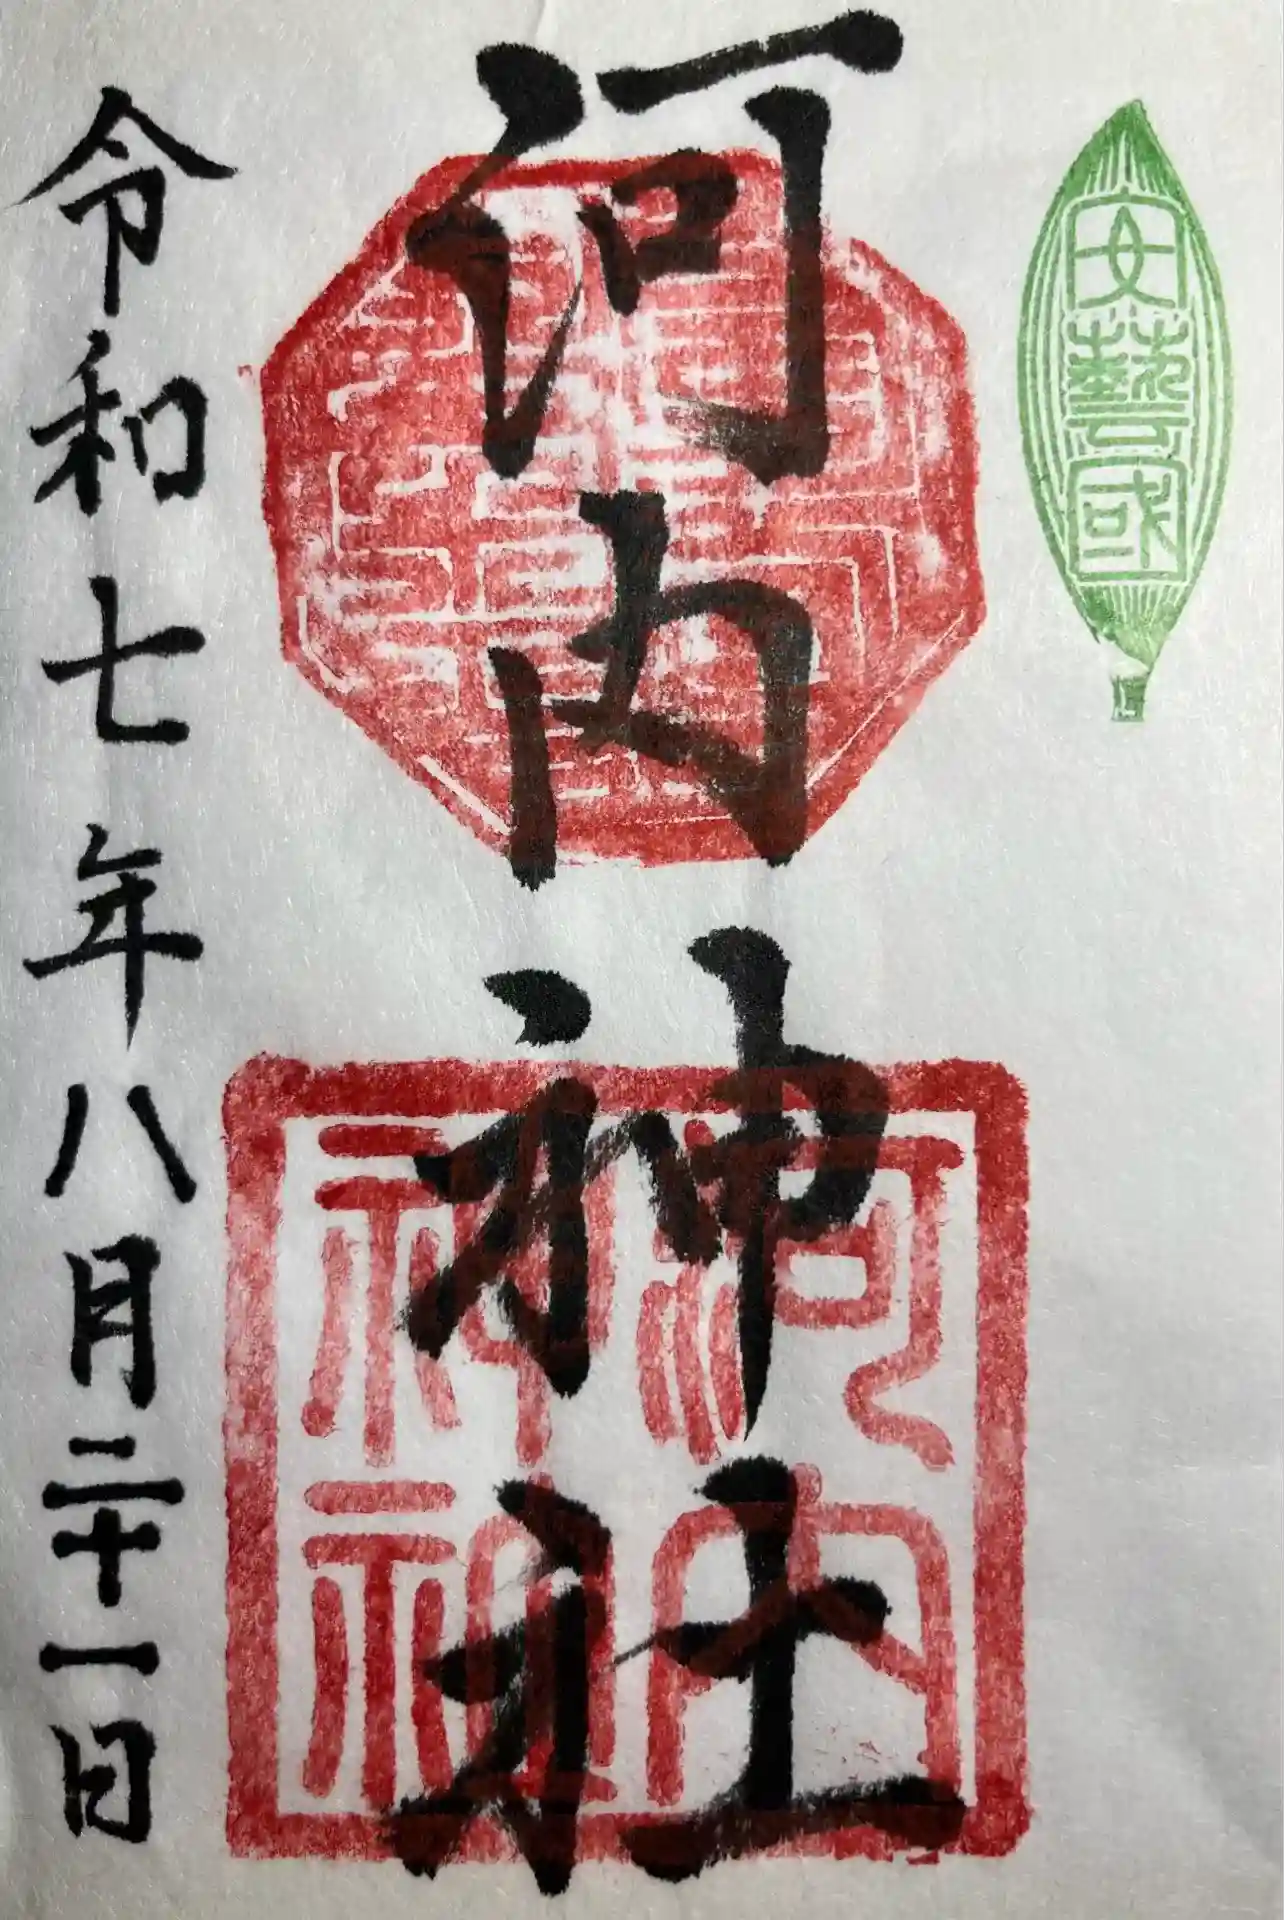 安藝國
河内神社
河内神社
令和七年八月三十一日